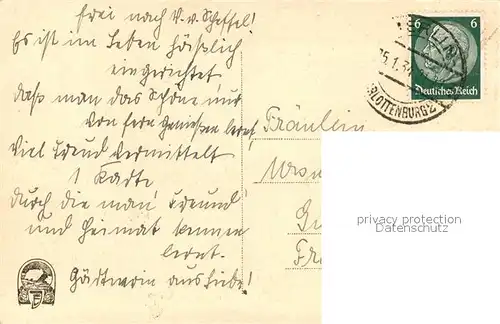 frei nach V. v. Scheffel!
Es ist im Leben häßlich
eingerichtet
daß man das Schöne nur
von fern genießen lernt,
Viel Freud vermittelt
1 Karte
durch die man Freund
und Heimat kennen
lernt.
aus Liebe!
Fräulein
6 6
Deutsches Reich
BERLIN
5.1.3
LOTTENBURG 2
privacy protection